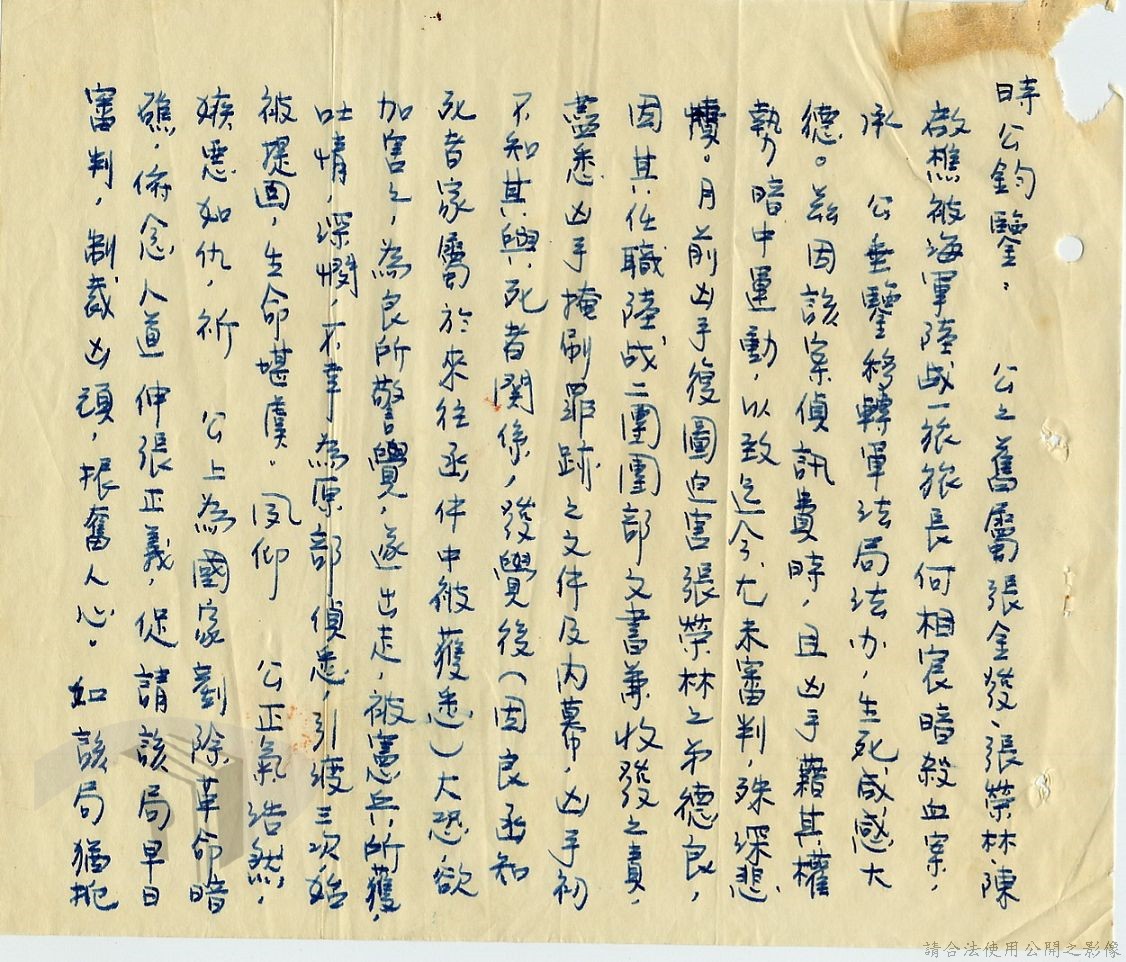 時公鈞鑒：　公之舊屬張金發、張榮林、陳
啟樵被海軍陸战一旅旅長何相宸暗殺血案，
承　公垂鑒移轉軍法局法办，生死咸感大
德。茲因該案偵訊費時，且凶手藉其權
勢暗中運動，以致迄今尤未審判，殊深悲
憤。月前凶手復圖迫害張榮林之弟德良，
因其任職陸战二團團部文書兼收發之責，
盡悉凶手掩刷罪跡之文件及內幕，凶手初
不知其與死者関係，發覺後（因良函知
死者家屬於來往函件中被獲悉）大恐，欲
加害之，為良所警覺，遂出走，被憲兵所獲，
吐情，深憫，不幸為原部偵悉，引渡三次，始
被提回，生命堪虞。夙仰　公正氣浩然，
嫉惡如仇，祈　公上為國家剷除革命暗
礁，俯念人道伸張正義，促請該局早日
審判，制裁凶頑，振奮人心。如該局猶抱
請合法使用公開之影像